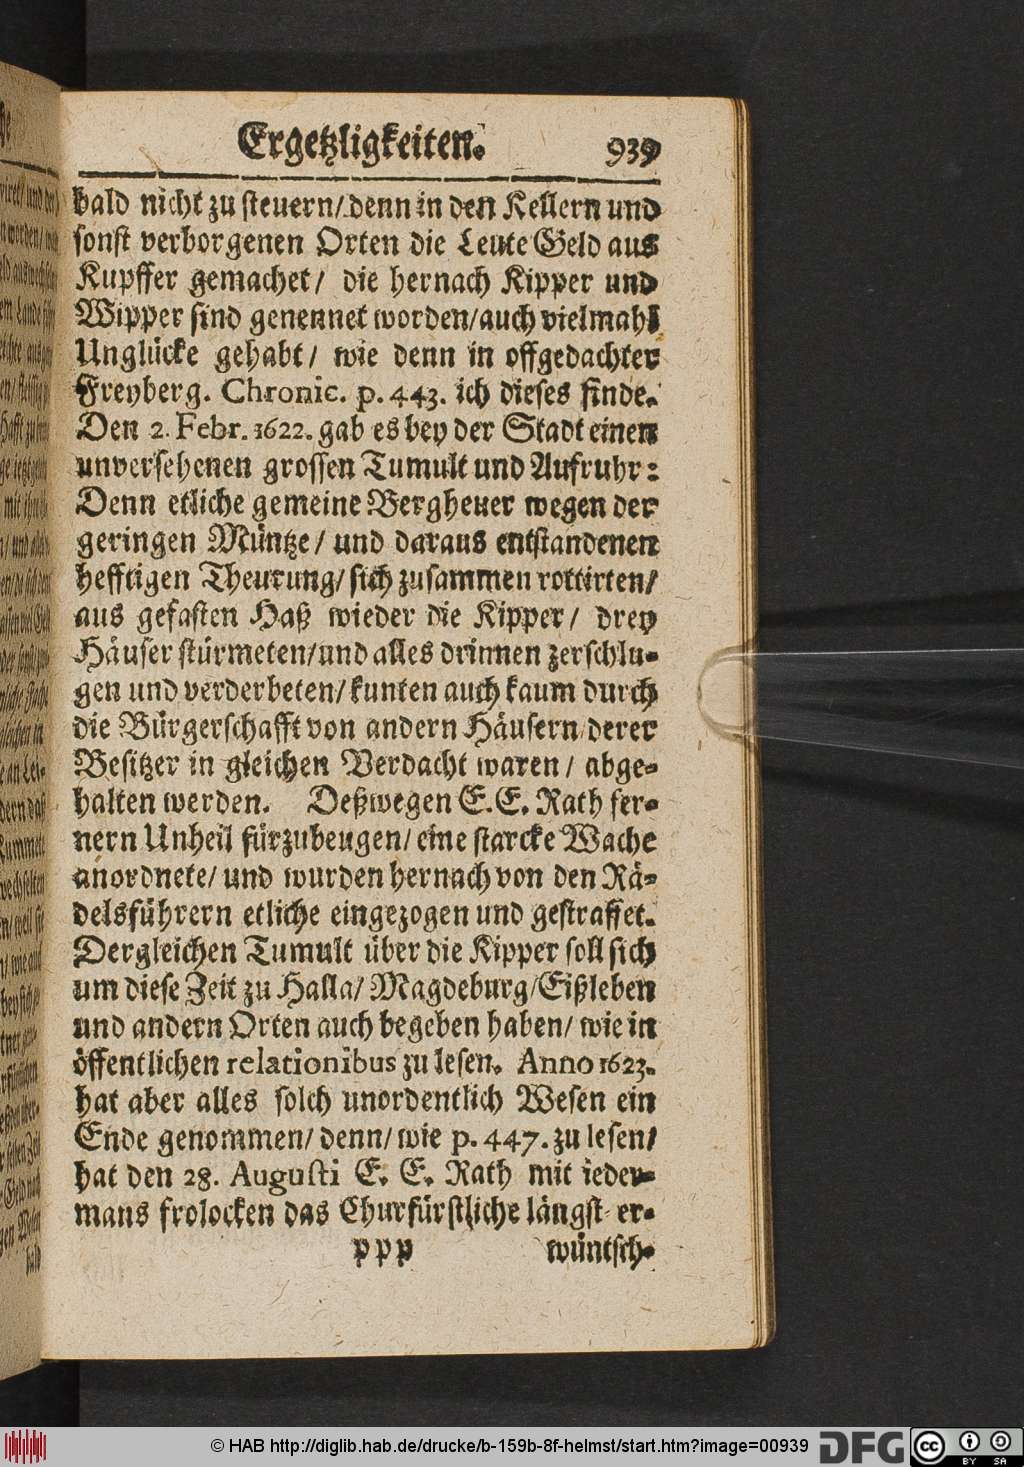 Ergetzligkeiten. 939
bald nicht zu steuern/ denn in den Kellern und
sonst verborgenen Orten die Leute Geld aus
Kupffer gemachet/ die hernach Kipper und
Wipper sind genennet worden/ auch vielmahl
Unglücke gehabt/ wie denn in offgedachter
Freyberg. Chronic. p. 443. ich dieses finde.
Den 2. Febr. 1622. gab es bey der Stadt einen
unversehenen grossen Tumult und Aufruhr:
Denn etliche gemeine Bergheuer wegen der
geringen Müntze/ und daraus entstandenen
hefftigen Theurung/ sich zusammen rottirten/
aus gefasten Haß wieder die Kipper/ drey
Häuser stürmeten/ und alles drinnen zerschlu-
gen und verderbeten/ kunten auch kaum durch
die Bürgerschafft von andern Häusern/ derer
Besitzer in gleichen Verdacht waren/ abge-
halten werden. Deßwegen E. E. Rath fer-
nern Unheil fürzubeugen/ eine starcke Wache
anordnete/ und wurden hernach von den Rä-
delsführern etliche eingezogen und gestraffet.
Dergleichen Tumult über die Kipper soll sich
um diese Zeit zu Halla/ Magdeburg/ Eißleben
und andern Orten auch begeben haben/ wie in
öffentlichen relationibus zu lesen. Anno 1623.
hat aber alles solch unordentlich Wesen ein
Ende genommen/ denn/ wie p. 447. zu lesen/
hat den 28. Augusti E. E. Rath mit ieder-
mans frolocken das Churfürstliche längst er-
ppp wüntsch-
© HAB http://diglib.hab.de/drucke/b-159b-8f-helmst/start.htm?image=00939 DFG cc BY SA